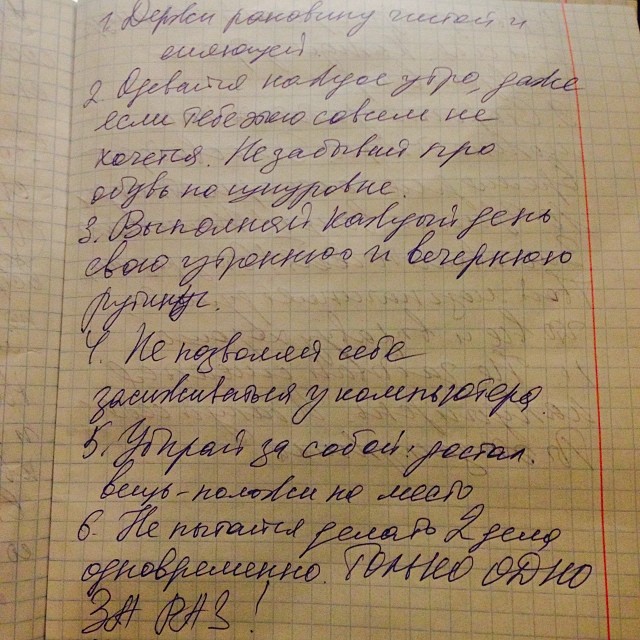 1. Держи раковину чистой и
сияющей.
2 Одевайся каждое утро, даже
если тебе это совсем не
хочется. Не забывай про
обувь на шнуровке.
3. Выполняй каждый день
свою утреннюю и вечернюю
рутину.
4. Не позволяй себе
засиживаться у компьютера.
5. Убирай за собой: достал.
вещь - положи на место
6. Не пытайся делать 2 дела
одновременно. ТОЛЬКО ОДНО
ЗА РАЗ!